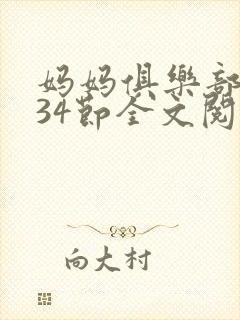 妈妈俱樂部
34節全文閱
向大村